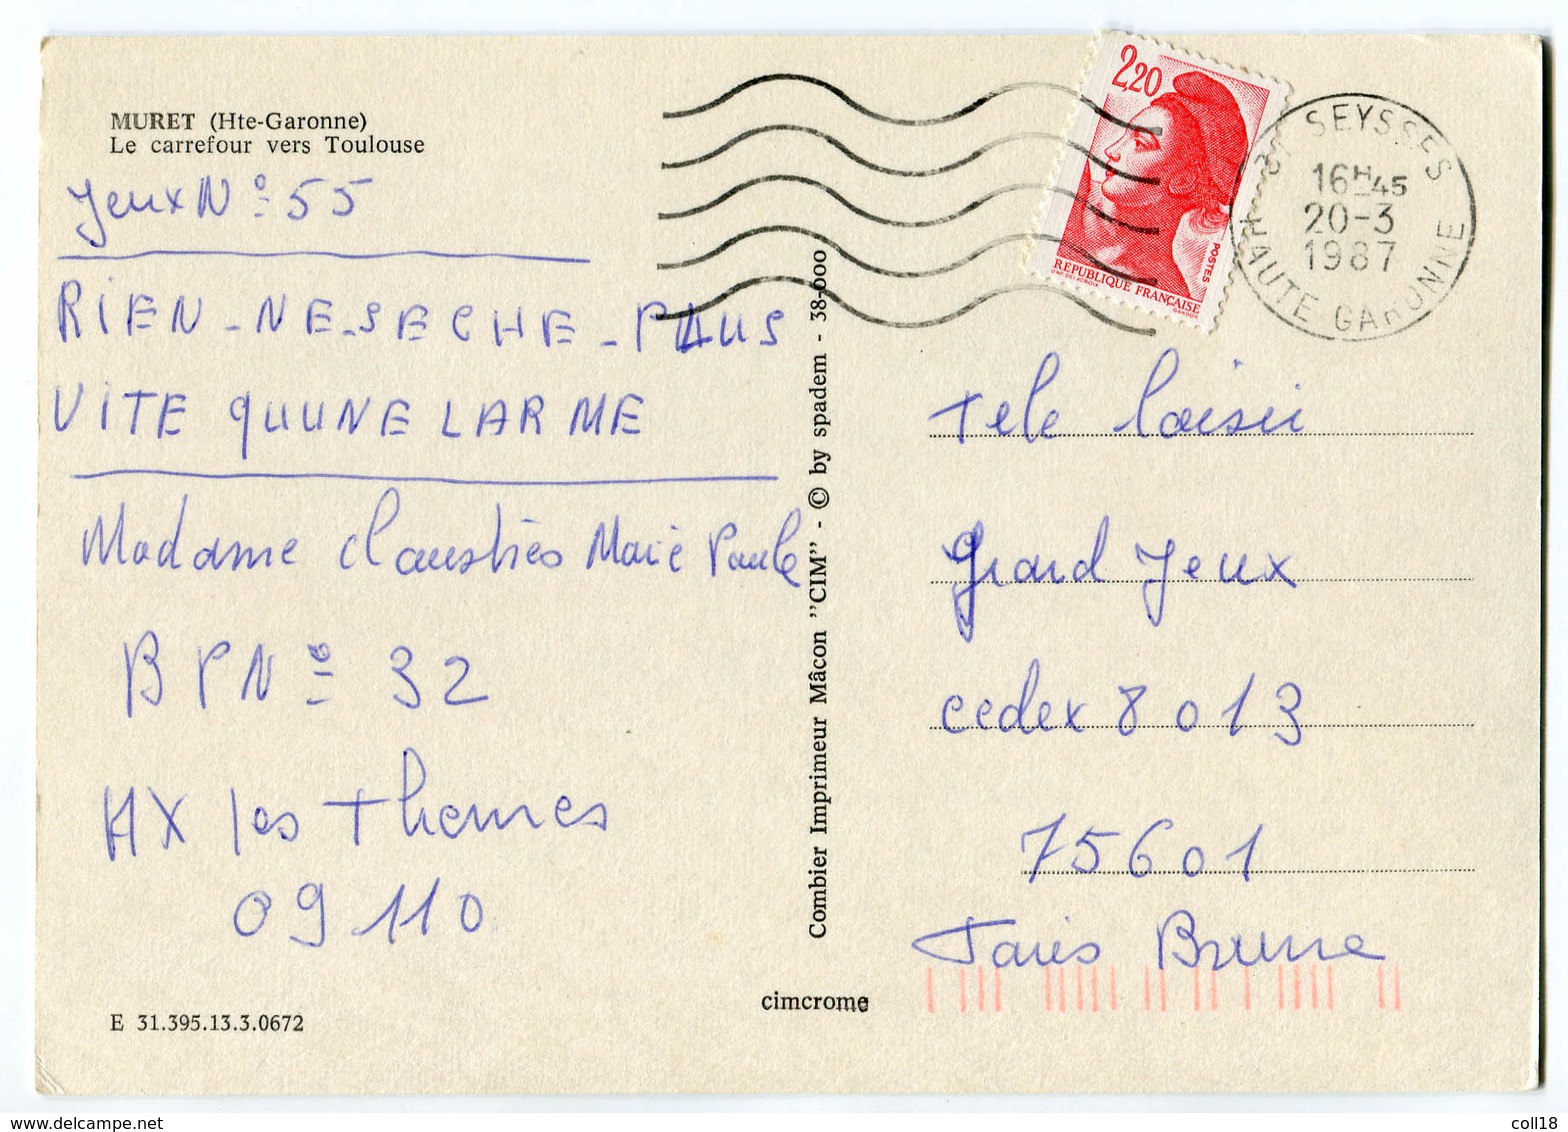 MURET (Hte-Garonne)
Le carrefour vers Toulouse
Jeux N° 55
RIEN - NE - SECHE - PLUS
VITE QUUNE LARME
Madame Claustres Marie Paule
BPN° 32
AX les Thermes
09110
E 31.395.13.3.0672
Combier Imprimeur Mâcon "CIM" - © by spadem - 38-000
cimcrome
2,20
POSTES
REPUBLIQUE FRANÇAISE
D'AP. DELACROIX
GANDON
31 SEYSSES
16H45
20-3
1987
HAUTE GARONNE
Tele loisir
Grand Jeux
cedex 8013
75601
Paris Brune
www.delcampe.net
coll18